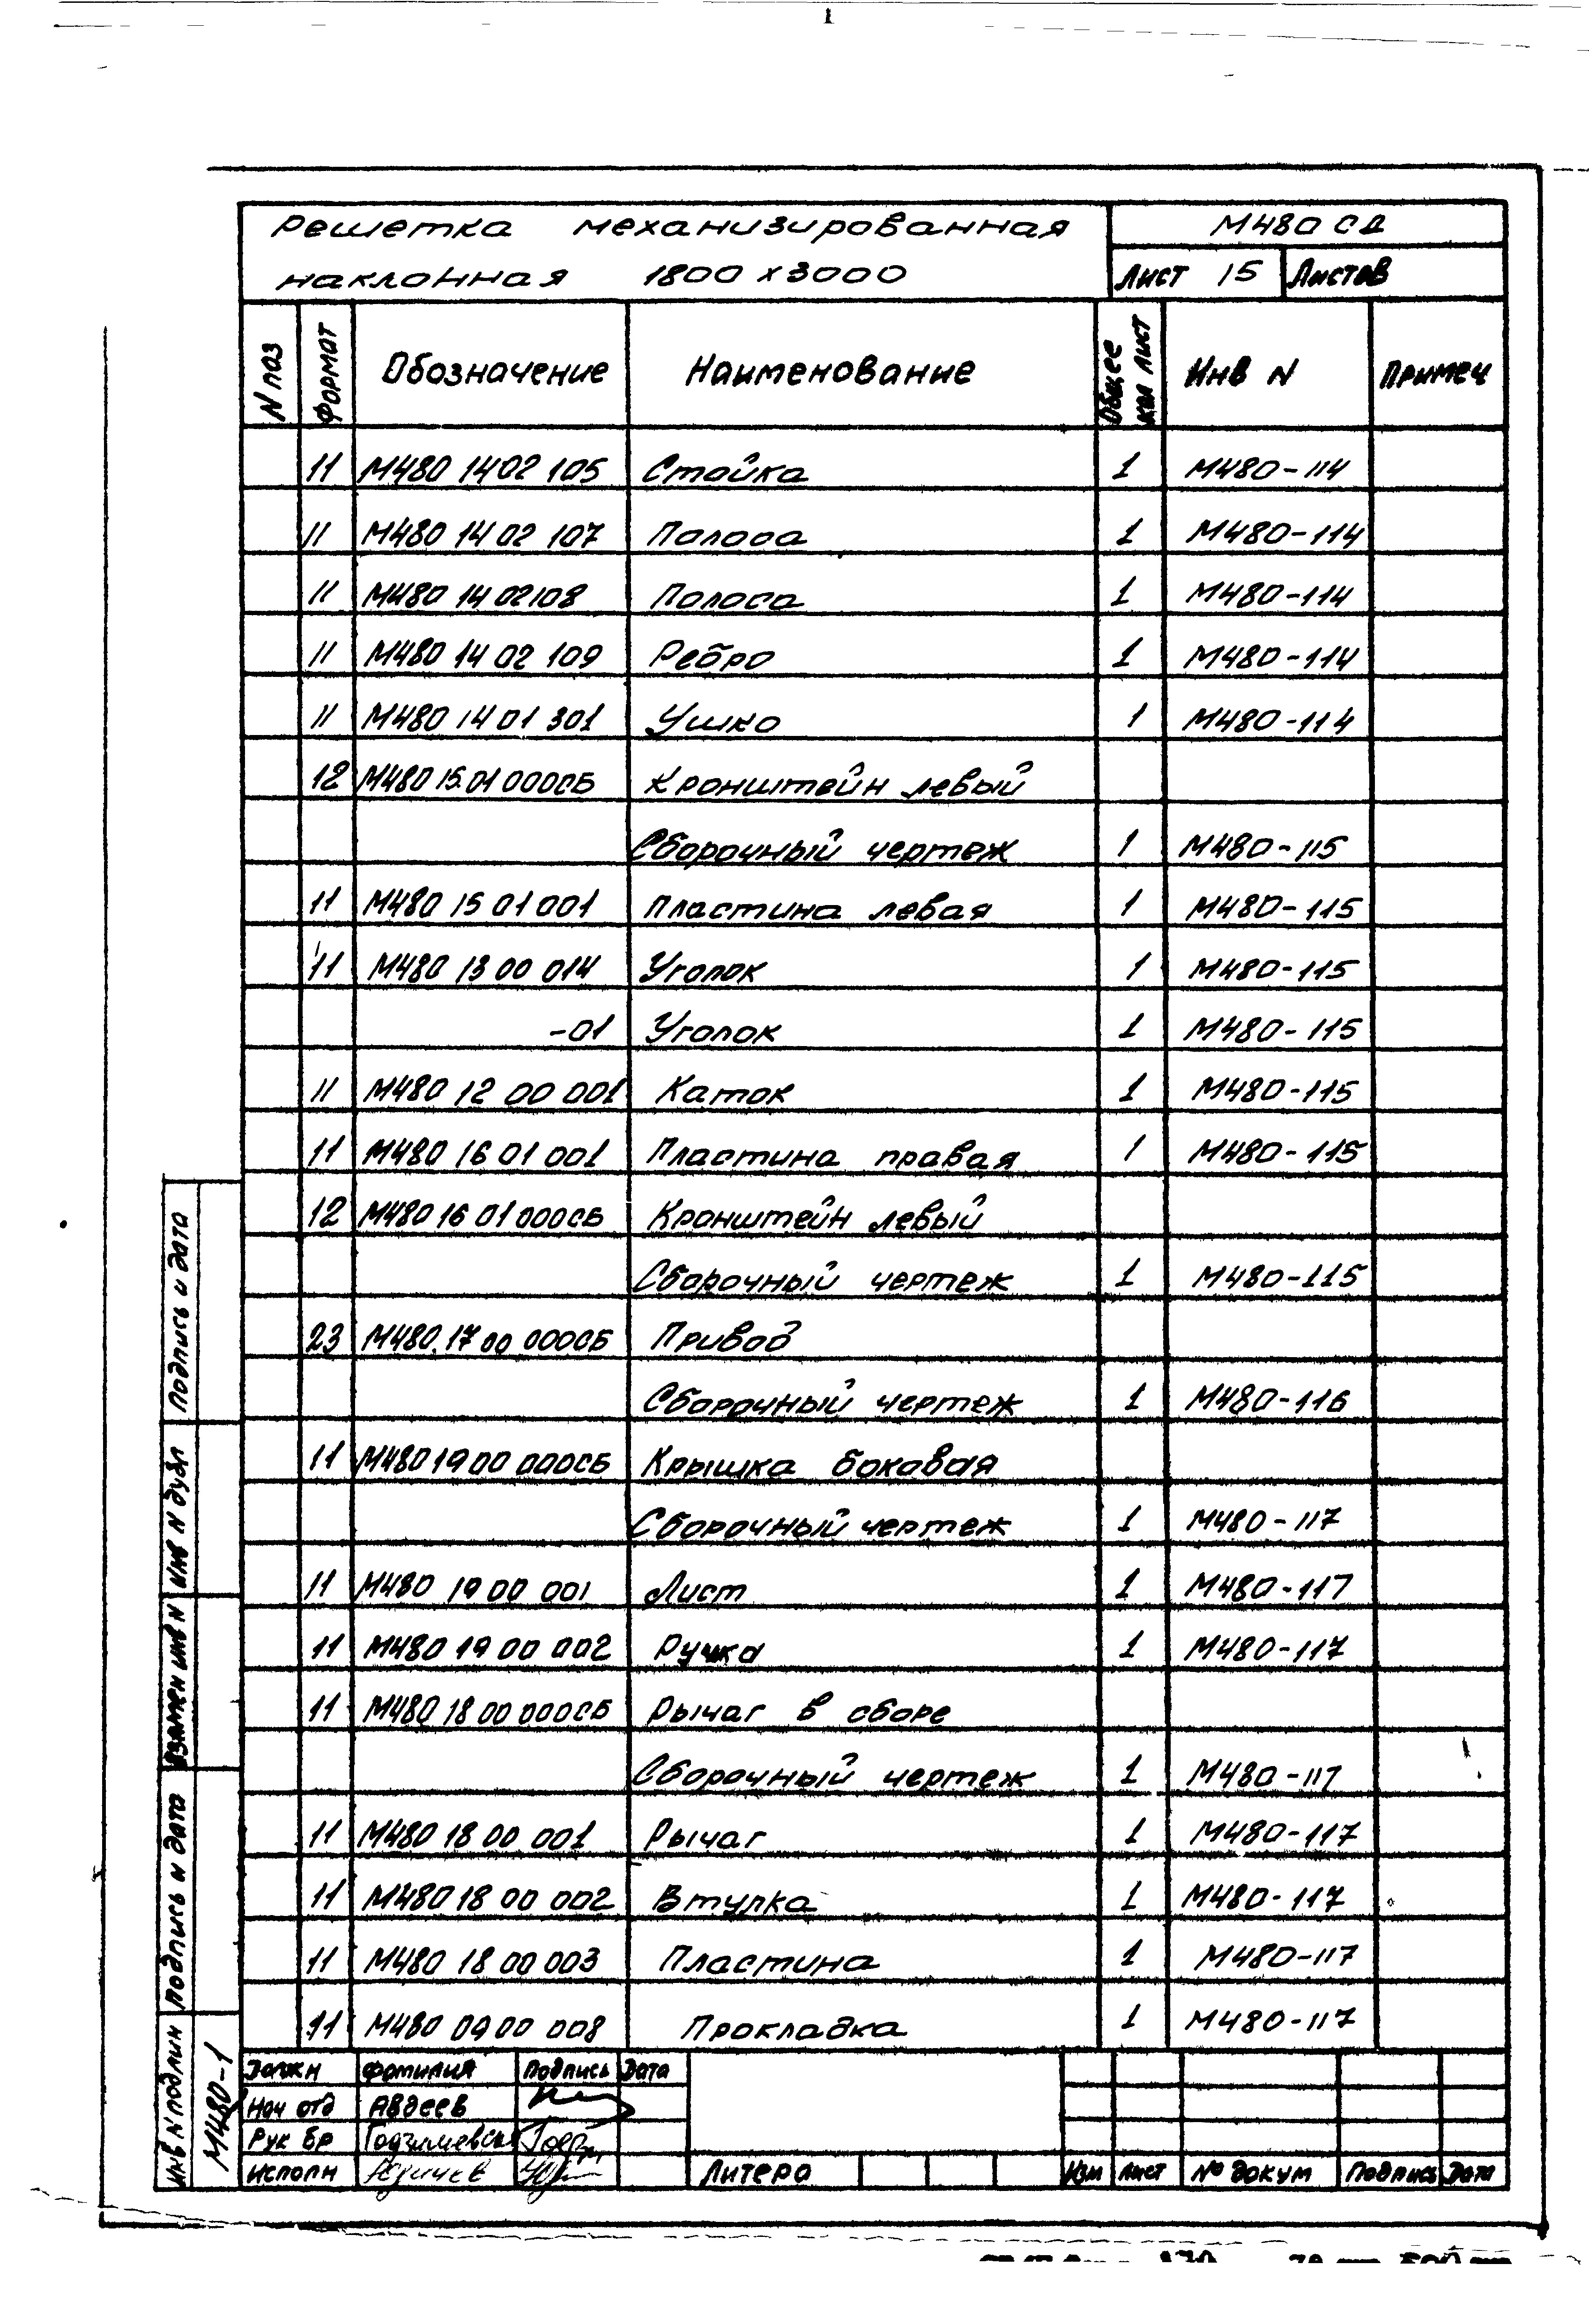 1
Решетка механизированная
наклонная 1800 х 3000
М480 СД
Лист 15 Листов
N поз Формат Обозначение Наименование Общее кол лист Инв N Примеч
11 М480 14 02 105 Стойка 1 М480-114
11 М480 14 02 107 Полоса 1 М480-114
11 М480 14 02 108 Полоса 1 М480-114
11 М480 14 02 109 Ребро 1 М480-114
11 М480 14 01 301 Ушко 1 М480-114
12 М480 15.01 000СБ Кронштейн левый
Сборочный чертеж 1 М480-115
11 М480 15 01 001 Пластина левая 1 М480-115
11 М480 13 00 014 Уголок 1 М480-115
-01 Уголок 1 М480-115
11 М480 12 00 001 Каток 1 М480-115
11 М480 16 01 001 Пластина правая 1 М480-115
12 М480 16 01 000СБ Кронштейн левый
Сборочный чертеж 1 М480-115
23 М480.17 00 000СБ Привод
Сборочный чертеж 1 М480-116
11 М480 19 00 000СБ Крышка боковая
Сборочный чертеж 1 М480-117
11 М480 19 00 001 Лист 1 М480-117
11 М480 19 00 002 Ручка 1 М480-117
11 М480 18 00 000СБ Рычаг в сборе
Сборочный чертеж 1 М480-117
11 М480 18 00 001 Рычаг 1 М480-117
11 М480 18 00 002 Втулка 1 М480-117
11 М480 18 00 003 Пластина 1 М480-117
11 М480 09 00 008 Прокладка 1 М480-117
Должн Фамилия Подпись Дата
Нач отд Авдеев
Рук бр
Исполн Юричев
Литера
Изм Лист № докум Подпись Дата
Подпись и дата
Инв N дубл
Взамен инв N
Подпись и дата
Инв N подлин
М480-1